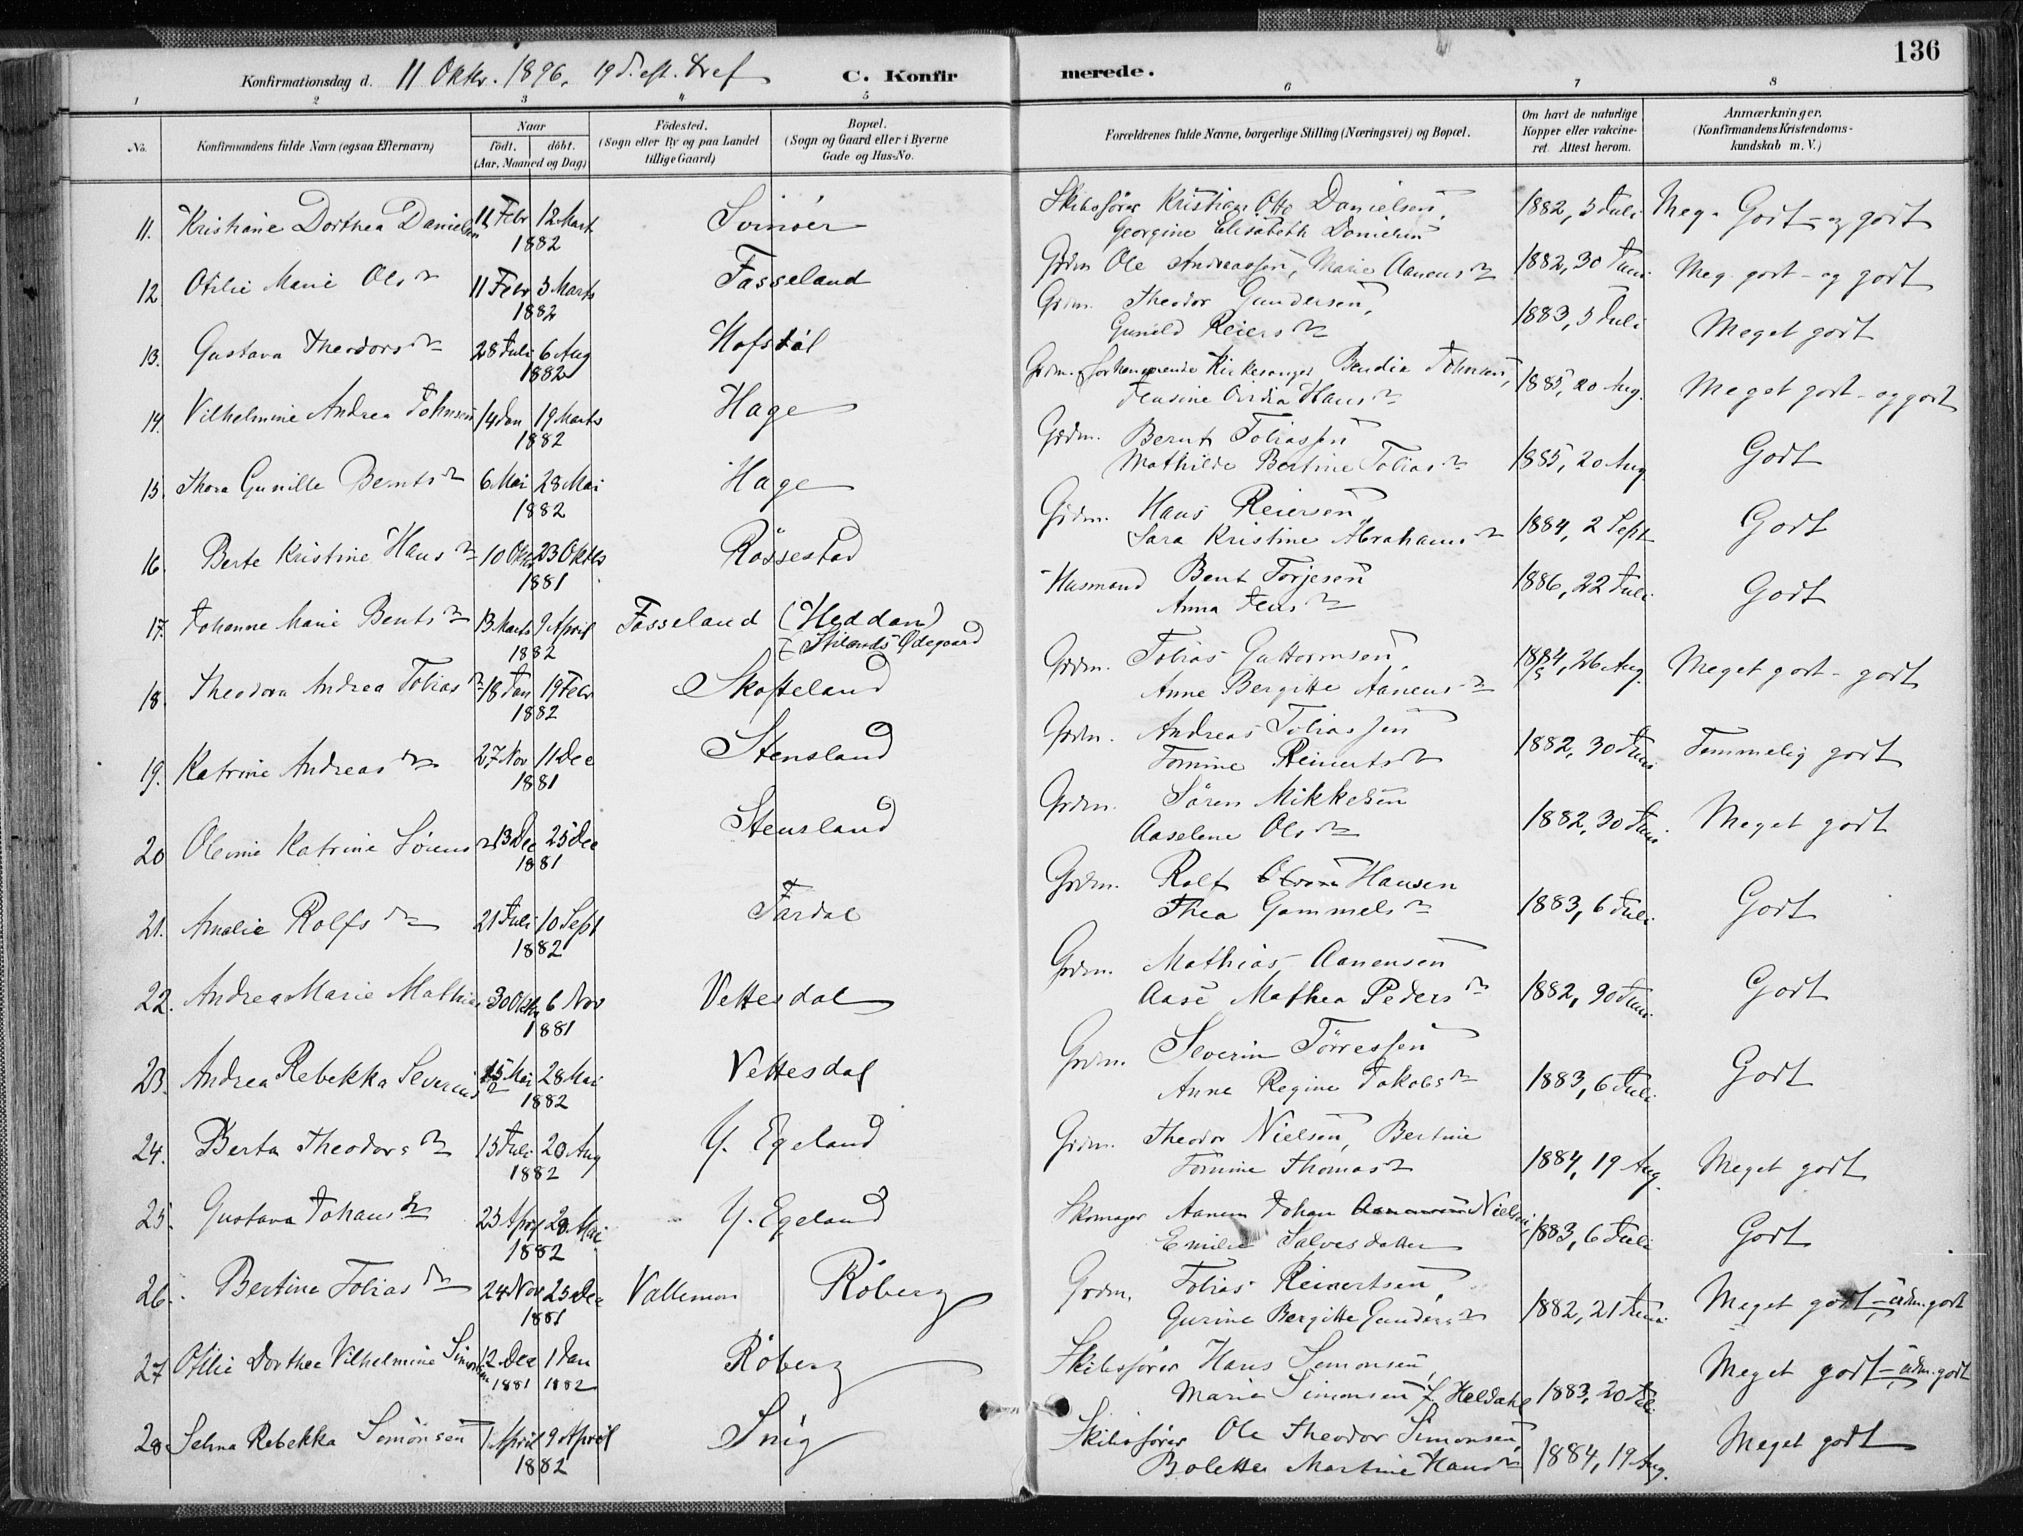 136
Konfirmationsdag d. 11 Oktbr. 1896, 19 S. eft. Tref
C. Konfirmerede.
1 2 3 4 5 6 7 8
No.
Konfirmandens fulde Navn (ogsaa Efternavn)
Naar
födt. döbt.
(Aar, Maaned og Dag)
Födested.
(Sogn eller By og paa Landet
tillige Gaard)
Bopæl.
(Sogn og Gaard eller i Byerne
Gade og Hus-No.
Forældrenes fulde Navne, borgerlige Stilling (Næringsvei) og Bopæl.
Om havt de naturlige
Kopper eller vakcine-
ret. Attest herom.
Anmærkninger.
(Konfirmandens Kristendoms-
kundskab m. V.)
11. Kristiane Dorthea Danielsen 11 Febr 12 Marts 1882 Svinöer
Skibsförer Kristian Otto Danielsen,
Georgine Elisabeth Danielsen
1882, 3 Juli Meg. Godt - og godt
12 Otilie Marie Olsdr 11 Febr 5 Marts 1882 Fasseland
Grdm Ole Andreassen, Marie Aanensdr 1882, 30 Juni Meg. godt - og godt
13. Gustava Theodorsdr 28 Juli 6 Aug 1882 Hofstöl
Grdm. Theodor Gundersen,
Gunild Reiersdr
1883, 5 Juli Meget godt
14. Vilhelmine Andrea Johnsen 14 Jan 19 Marts 1882 Hage
Grdm. & forhenværende Kirkesanger Bendix Johnsen,
Jensine Hansdr
1885, 20 Aug. Meget godt - og godt
15. Thora Gunille Berntsdr 6 Mai 28 Mai 1882 Hage
Grdm. Bernt Tobiassen
Mathilde Bertine Tobiasdr
1885, 20 Aug Godt
16. Berte Kristine Hansdr 10 Oktb 23 Oktb 1881 Rössestad
Grdm. Hans Reiersen
Sara Kristine Abrahamsdr
1884, 2 Sept Godt
17. Johanne Marie Bentsdr 13 Marts 9 April 1882 Fasseland (Heddan)
(Stilands Ødegaard
Husmand Bent Torjesen
Anna Jensdr
1886, 22 Juli Godt
18. Theodora Andrea Tobiasdr 18 Jan 19 Febr 1882 Skofteland
Grdm. Tobias Guttormsen,
Anne Bergitte Aanensdr
1884, 26 Aug. Meget godt - godt
19. Katrine Andreasdr 27 Nov 11 Dec 1881 Stensland
Grdm. Andreas Tobiassen
Tomine Reinertsdr
1882, 30 Juni Temmelig godt
20 Olevine Katrine Sörensdr 13 Dec 25 Dec 1881 Stensland
Grdm. Sören Mikkelsen
Aaselene Olsdr
1882, 30 Juni Meget godt
21. Amalie Rolfsdr 21 Juli 10 Sept 1882 Fardal
Grdm. Rolf Hansen
Thea Gammelsdr
1883, 6 Juli Godt
22. Andrea Marie Mathias 30 Oktb 6 Nov 1881 Vettesdal
Grdm. Mathias Aanensen
Aase Mathea Pedersdr
1882, 30 Juni Godt
23. Andrea Rebekka Severinsdr 15 Mai 28 Mai 1882 Vettesdal
Grdm. Severin Törressen
Anne Regine Jakobsdr
1883, 6 Juli Godt
24. Berta Theodorsdr 15 Juli 20 Aug 1882 Y. Egeland
Grdm. Theodor Nielsen, Bertine
Tomine Thomasdr
1884, 19 Aug. Meget godt
25. Gustava Johansdr 23 April 28 Mai 1882 Y. Egeland
Skomager Aanen Johan Aanensen Nielsen,
Emilie Salvesdatter
1883, 6 Juli Godt
26. Bertine Tobiasdr 24 Nov 25 Dec 1881 Vallemon Röberg
Grdm. Tobias Reinertsen,
Gurine Bergitte Gundersdr
1882, 21 Juni Meget godt - udm. godt
27 Otilie Dorthea Vilhelmine Simonsen 12 Dec 1881 1 Jan 1882 Röberg
Skibsförer Hans Simonsen,
Maria Simonsen f. Heldahl
1883, 20 Juli Meget godt - udm. godt
28 Selma Rebekka Simonsen 1 April 9 April 1882 Snig
Skibsförer Ole Theodor Simonsen,
Bolette Martine Hansdr
1884, 19 Aug. Meget godt